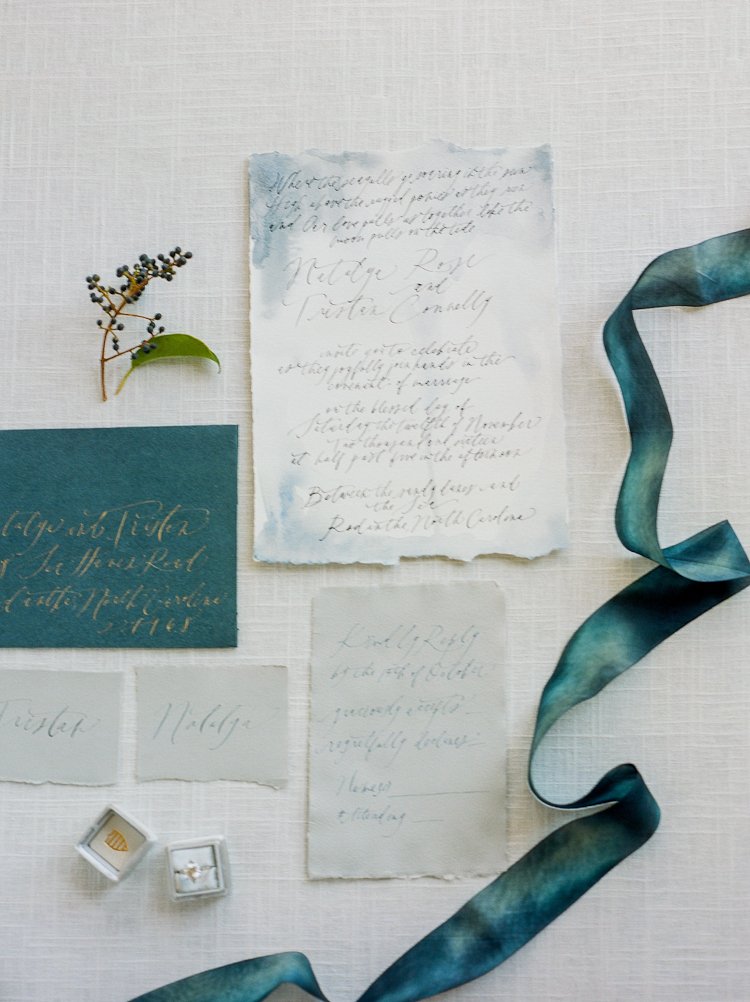 Where the seagulls go soaring in the sun
High above the rapid power as they run
and Our love pulls us together like the
moon pulls on the tide
Natalya Rose
and
Tristan Connelly
invite you to celebrate
as they joyfully join hands in the
covenant of marriage
on the blessed day of
Saturday the twelfth of November
Two thousand and sixteen
at half past five in the afternoon
Between the sand dunes and
the Sea
Rodanthe North Carolina
and Tristan
Road
North Carolina
Tristan
Natalya
Kindly Reply
by the of October
graciously accepts
regretfully declines
Names
# Attending